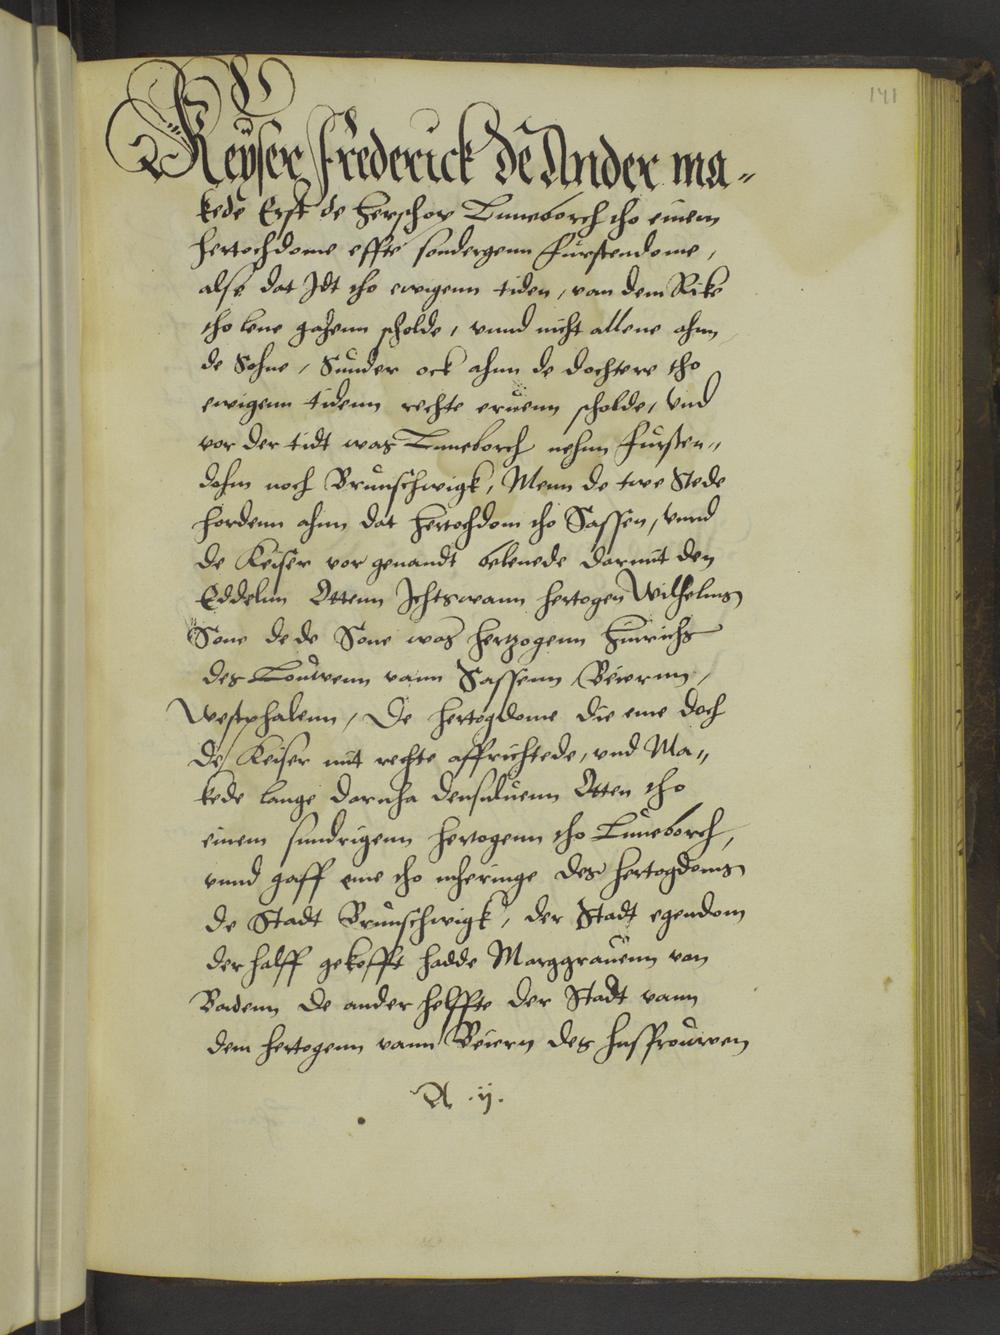 141
Keyser Frederick de Ander ma-
kede Erst de Herschop Luneborch tho einem
hertochdome effte sondergenn Furstendome,
alse dat Jdt tho ewigenn tiden, van dem Rike
tho lene gahenn scholde, vnnd nicht allene ahnn
de Sohne, Sunder ock ahnn de dochtere tho
ewigenn tidenn rechte eruenn scholde, Vnd
vor der tidt was Luneborch nehnn Fursten-
dohm noch Brunschwigk, Menn de twe Stede
hordenn ahnn dat hertochdom tho Sassen, vnnd
de Keiser vor genandt belenede darmit den
Eddelnn Ottenn Jchtswann hertogen Wilhelms
Sone de de Sone was hertzogenn Hinrichs
des Louwenn vann Sassenn, Beiernn,
Westphalenn, De hertogdome die eme doch
de Keiser mit rechte affrichtede, vnd Ma-
kede lange darnha densuluenn Otten tho
einem sundrigenn hertogenn tho Luneborch,
vnnd gaff eme tho mheringe des hertogdoms
de Stadt Brunschwigk, der Stadt egendom
der halff gekofft hadde Marggrauenn van
Badenn de ander helffte der Stadt vann
dem hertogenn vann Beiern des husfrouwen
A .ij.